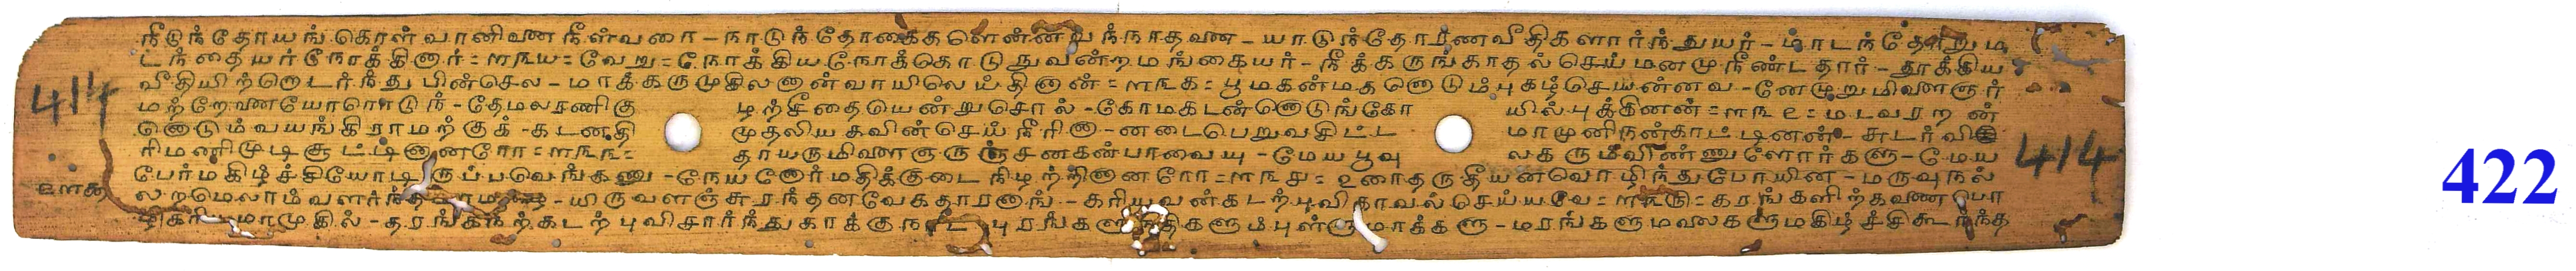 நீடுந்தோயங்கொள்வானிவண நீள்வரை - நாடுந்தோகைத வந்நாதவண - யாடுந்தோரணவீதிகளார்ந்துயர் - மாடந்தோறும
ட்ந்தையர்நோக்கினார் = ௱௩ய = வேறு = நோக்கியநோக்கொடு நுவன்றமங்கையர் - நீக்கருங்காதல்செய்மனமுநீண்டதார் - தூக்கிய
வீதியிற்றொடர்ந்து பின்செல - மாக்கருமுகிலனான்வாயிலெய்தினான் = ௱௩௧ = பூமகன்மதனொடும்புகழ்செயன்னவ - னேமுறுமிளைஞர்
மற்றேணையோரொடுந் - தேமலரணிகு ழற்சீதையென்றுசொல் - கோமகடன்னொடுங்கோ யில்புக்கினன் = ௱௩௨ = மடவரறன்
னொடும்வயங்கிராமற்குக் - கடனதி முதலியகவின்செய்நீரினா - னடைபெறுவசிட்ட மாமுனிநன்காட்டினன் - சுடர்வி
ரிமணிமுடிசூட்டினானரோ = ௱௩௩ = தாயருமிளைஞருஞ்சனகன்பாவையு - மேயபூவு லகரும்விண்ணுளோர்களு - மேய
பேர்மகிழ்ச்சியோடிருப்பவெங்கணு - நேயனோர்மதிக்குடைநிழற்றினானரோ = ௱௩௪ = உரைதருதீயனவொழிந்துபோயின - மருவுநல்
லறமெலாம்வளர்ந்த - யிருவளஞ்சுரந்தனவேகதாரனாங் - கரியவன்கடற்புவிகாவல்செய்யவே = ௱௩௫ = கரங்களிற்கவண
மாமுகில் - தரங்கநற்கடற்புவிசார்ந்துகாக்குநாட் புரங்களு நதிகளும்புள்ளுமாக்களு - மரங்களுமலைகளுமகிழ்ச்சிகூடர்ந்த
414
414
422